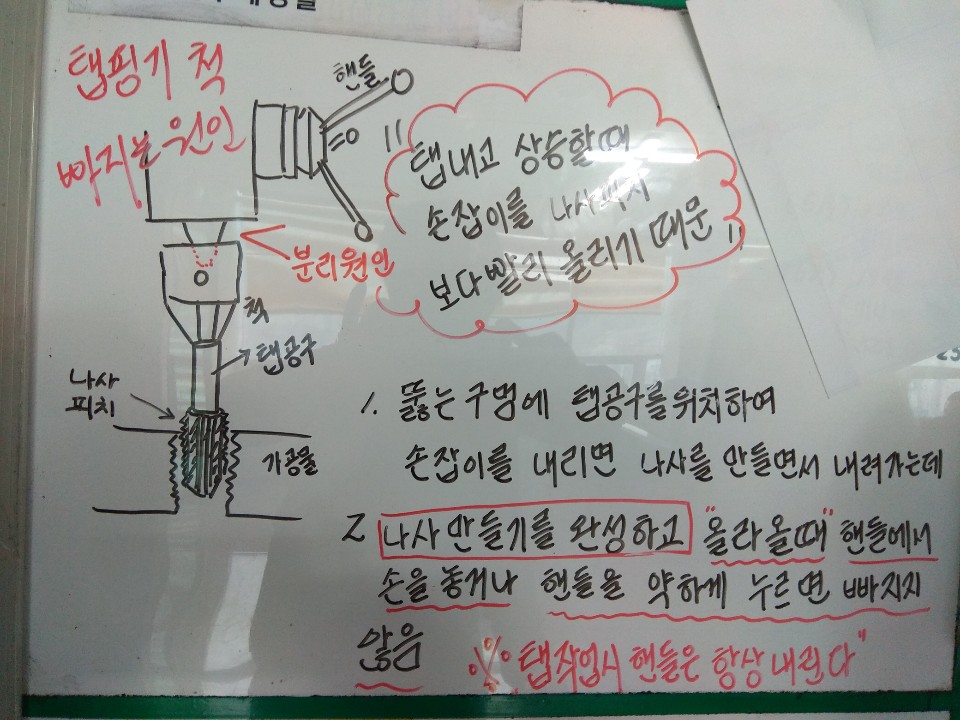 탭핑기 척
빠지는 원인
핸들
"탭내고 상승할때
손잡이를 나사피치
보다 빨리 올리기 때문"
분리원인
척
탭공구
나사
피치
가공물
1. 뚫는 구멍에 탭공구를 위치하여
손잡이를 내리면 나사를 만들면서 내려가는데
2 나사만들기를 완성하고 "올라올때" 핸들에서
손을 놓거나 핸들을 약하게 누르면 빠지지
않음
※ 탭작업시 핸들은 항상 내린다"